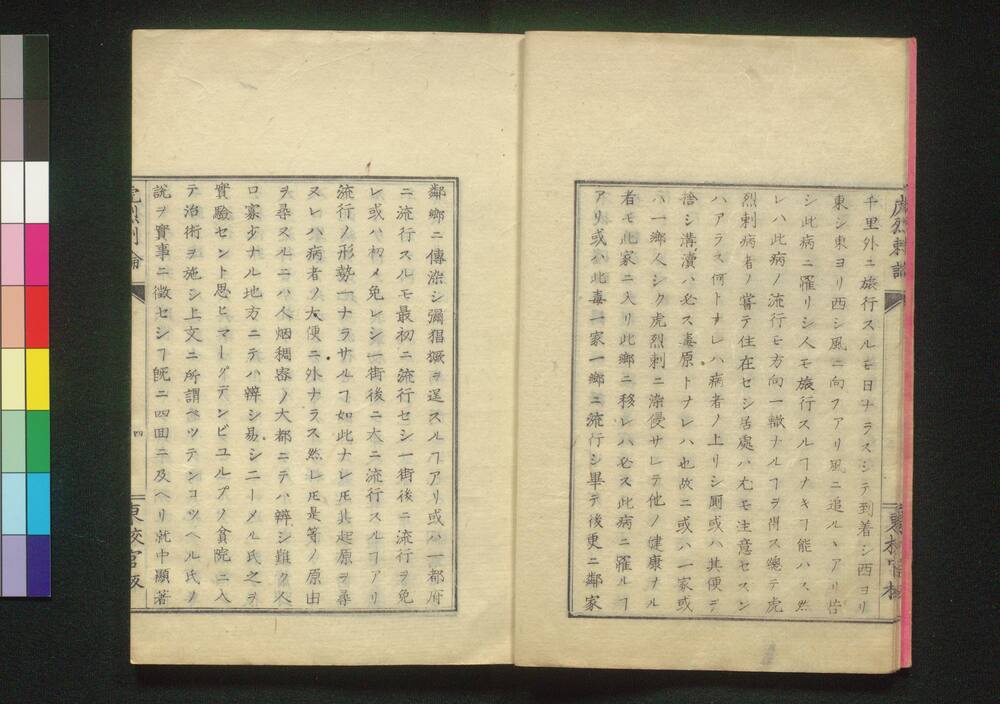 虎烈剌論
千里外ニ旅行スルモ日ナラスシテ到着シ西ヨリ
東シ東ヨリ西シ風ニ向フアリ風ニ追ルヽアリ皆
シ此病ニ罹リシ人モ旅行スルヿナキヿ能ハス然
レハ此病ノ流行モ方向一轍ナルヿヲ得ス總テ虎
烈剌病者ノ嘗テ住在セシ居處ハ尤モ注意セスン
ハアラス何トナレハ病者ノ上リシ厠或ハ其便ヲ
捨シ溝瀆ハ必ス毒原トナレハ也故ニ或ハ一家或
ハ一鄉人シク虎烈剌ニ染侵サレテ他ノ健康ナル
者モ此家ニ入リ此鄉ニ移レハ必ス此病ニ罹ルヿ
アリ或ハ此毒一家一鄉ニ流行シ畢テ後更ニ鄰家
鄰鄉ニ傳染シ彌猖獗ヲ逞スルヿアリ或ハ一都府
ニ流行スルモ最初ニ流行セシ一街後ニ流行ヲ免
レ或ハ初メ免レシ一街後ニ大ニ流行スルヿアリ
流行ノ形勢一ナラサルヿ如此ナレ𪜈其起原ヲ尋
ヌレハ病者ノ大便ニ外ナラス然レ𪜈是等ノ原由
ヲ尋スルニハ人烟稠宻ノ大都ニテハ辨シ難ク人
口寡少ナル地方ニテハ辨シ易シニーメル氏之ヲ
實驗セント思ヒマーグデンビユルプノ貪院ニ入
テ治術ヲ施シ上文ニ所謂ペツテンコツヘル氏ノ
說ヲ實事ニ徵セシヿ既ニ四回ニ及ヘリ就中顯著
四
東校官板